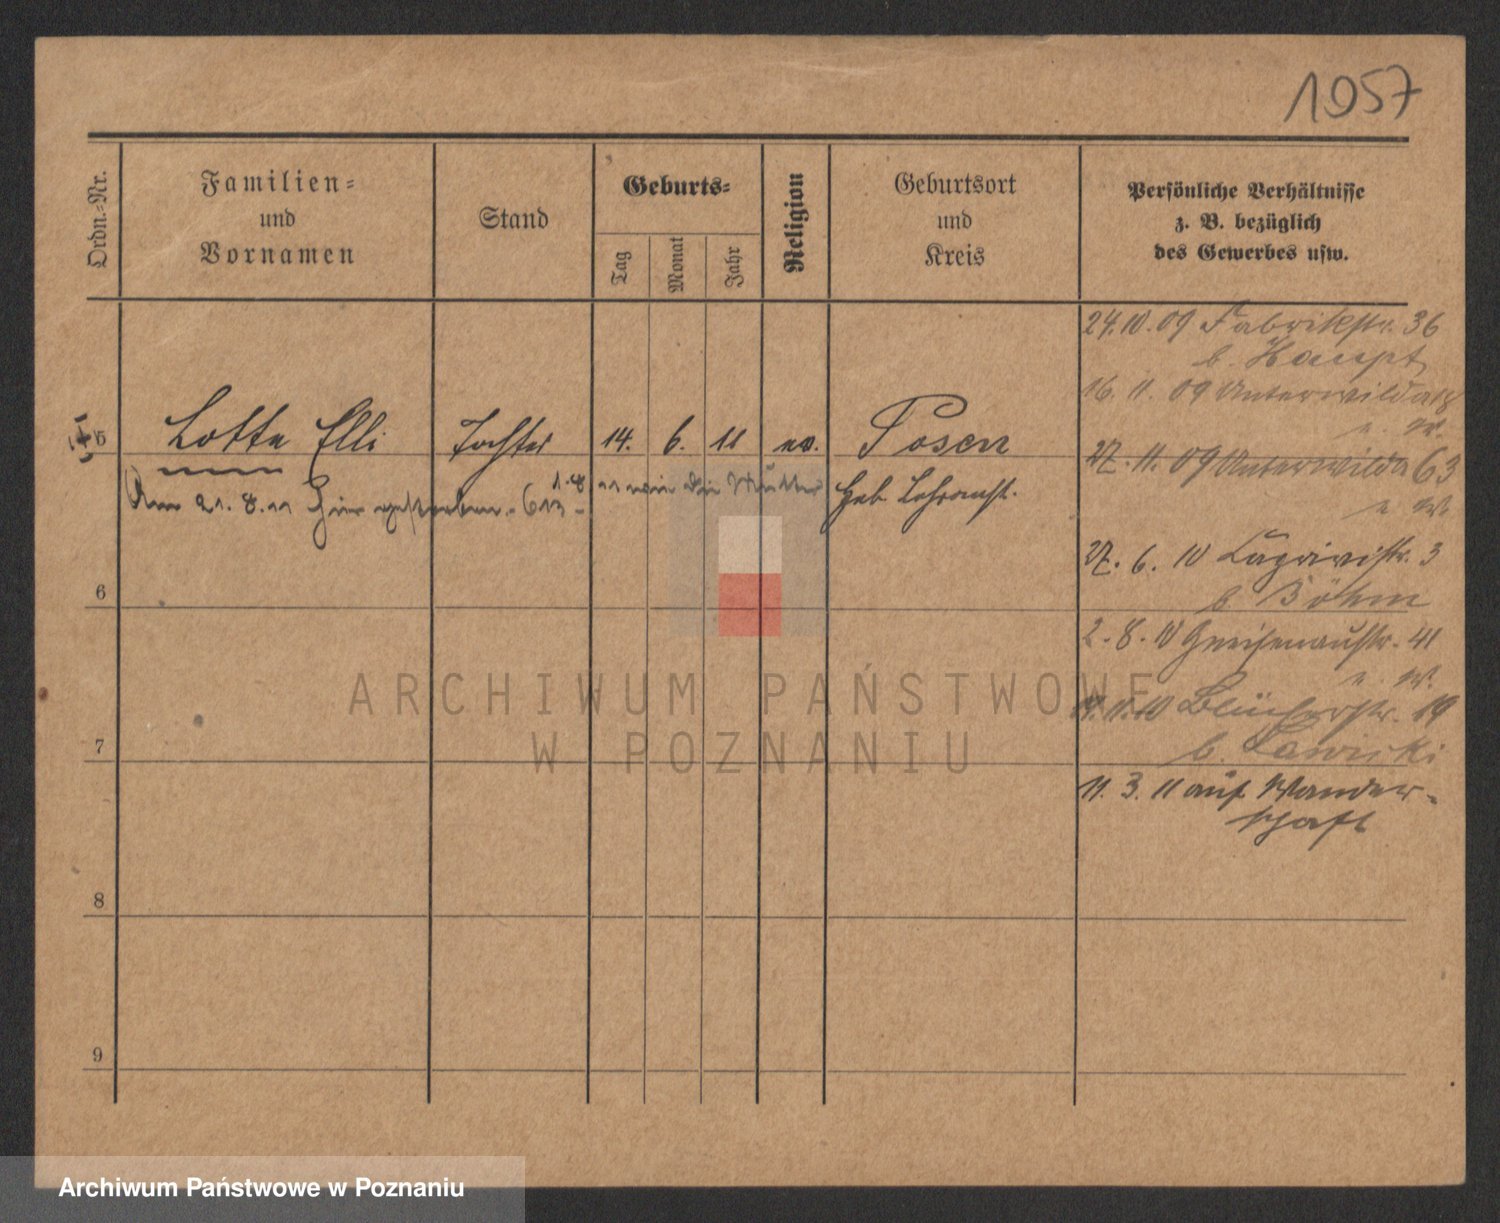 1057
Ordn.-Nr.
Familien-
und
Vornamen
Stand
Geburts-
Tag
Monat
Jahr
Religion
Geburtsort
und
Kreis
Persönliche Verhältnisse
z. B. bezüglich
des Gewerbes usw.
24.10.09 Fabrikstr. 36
b. Haupt
16.11.09 Unterwilda 18
5 Lotte Elli Tochter 14. 6. 11 ev. Posen
27.11.09 Unterwilda 63
Am 21.8.11 hier gestorben. 613
1.8 11 wie die Mutter
Geb.
27.6.10 3
b. Böhm
6
2.8.10 Gneisenaustr. 41
10 Blücherstr. 19
b.
7
11.3.11 auf Wander-
schaft
8
9
ARCHIWUM PAŃSTWOWE
W POZNANIU
Archiwum Państwowe w Poznaniu